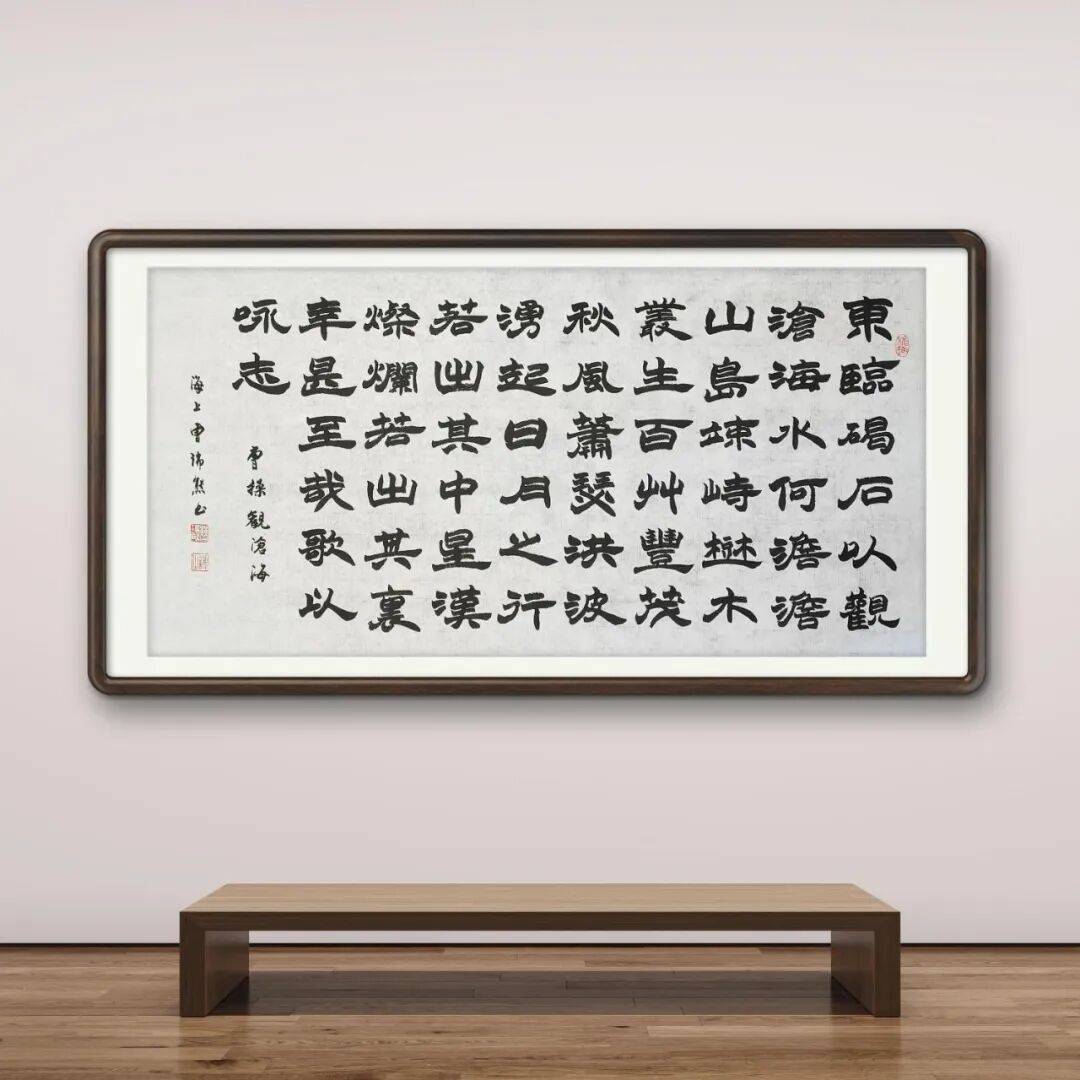 東臨碣石以觀
滄海水何澹澹
山島竦峙樹木
叢生百艸豐茂
秋風蕭瑟洪波
湧起日月之行
若出其中星漢
燦爛若出其裏
幸甚至哉歌以
咏志
曹操觀滄海
海上